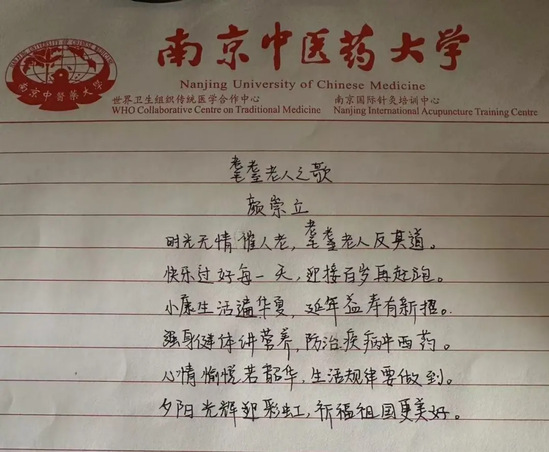 南京中医药大学
Nanjing University of Chinese Medicine
世界卫生组织传统医学合作中心 南京国际针灸培训中心
WHO Collaborative Centre on Traditional Medicine Nanjing International Acupuncture Training Centre
南京中醫藥大學
耄耋老人之歌
颜崇立
时光无情催人老,耄耋老人反其道。
快乐过好每一天,迎接百岁再赶跑。
小康生活遍华夏,延年益寿有新招。
强身健体讲营养,防治疾病中西药。
心情愉悦若韶华,生活规律要做到。
夕阳光辉迎彩虹,祈福祖国更美好。